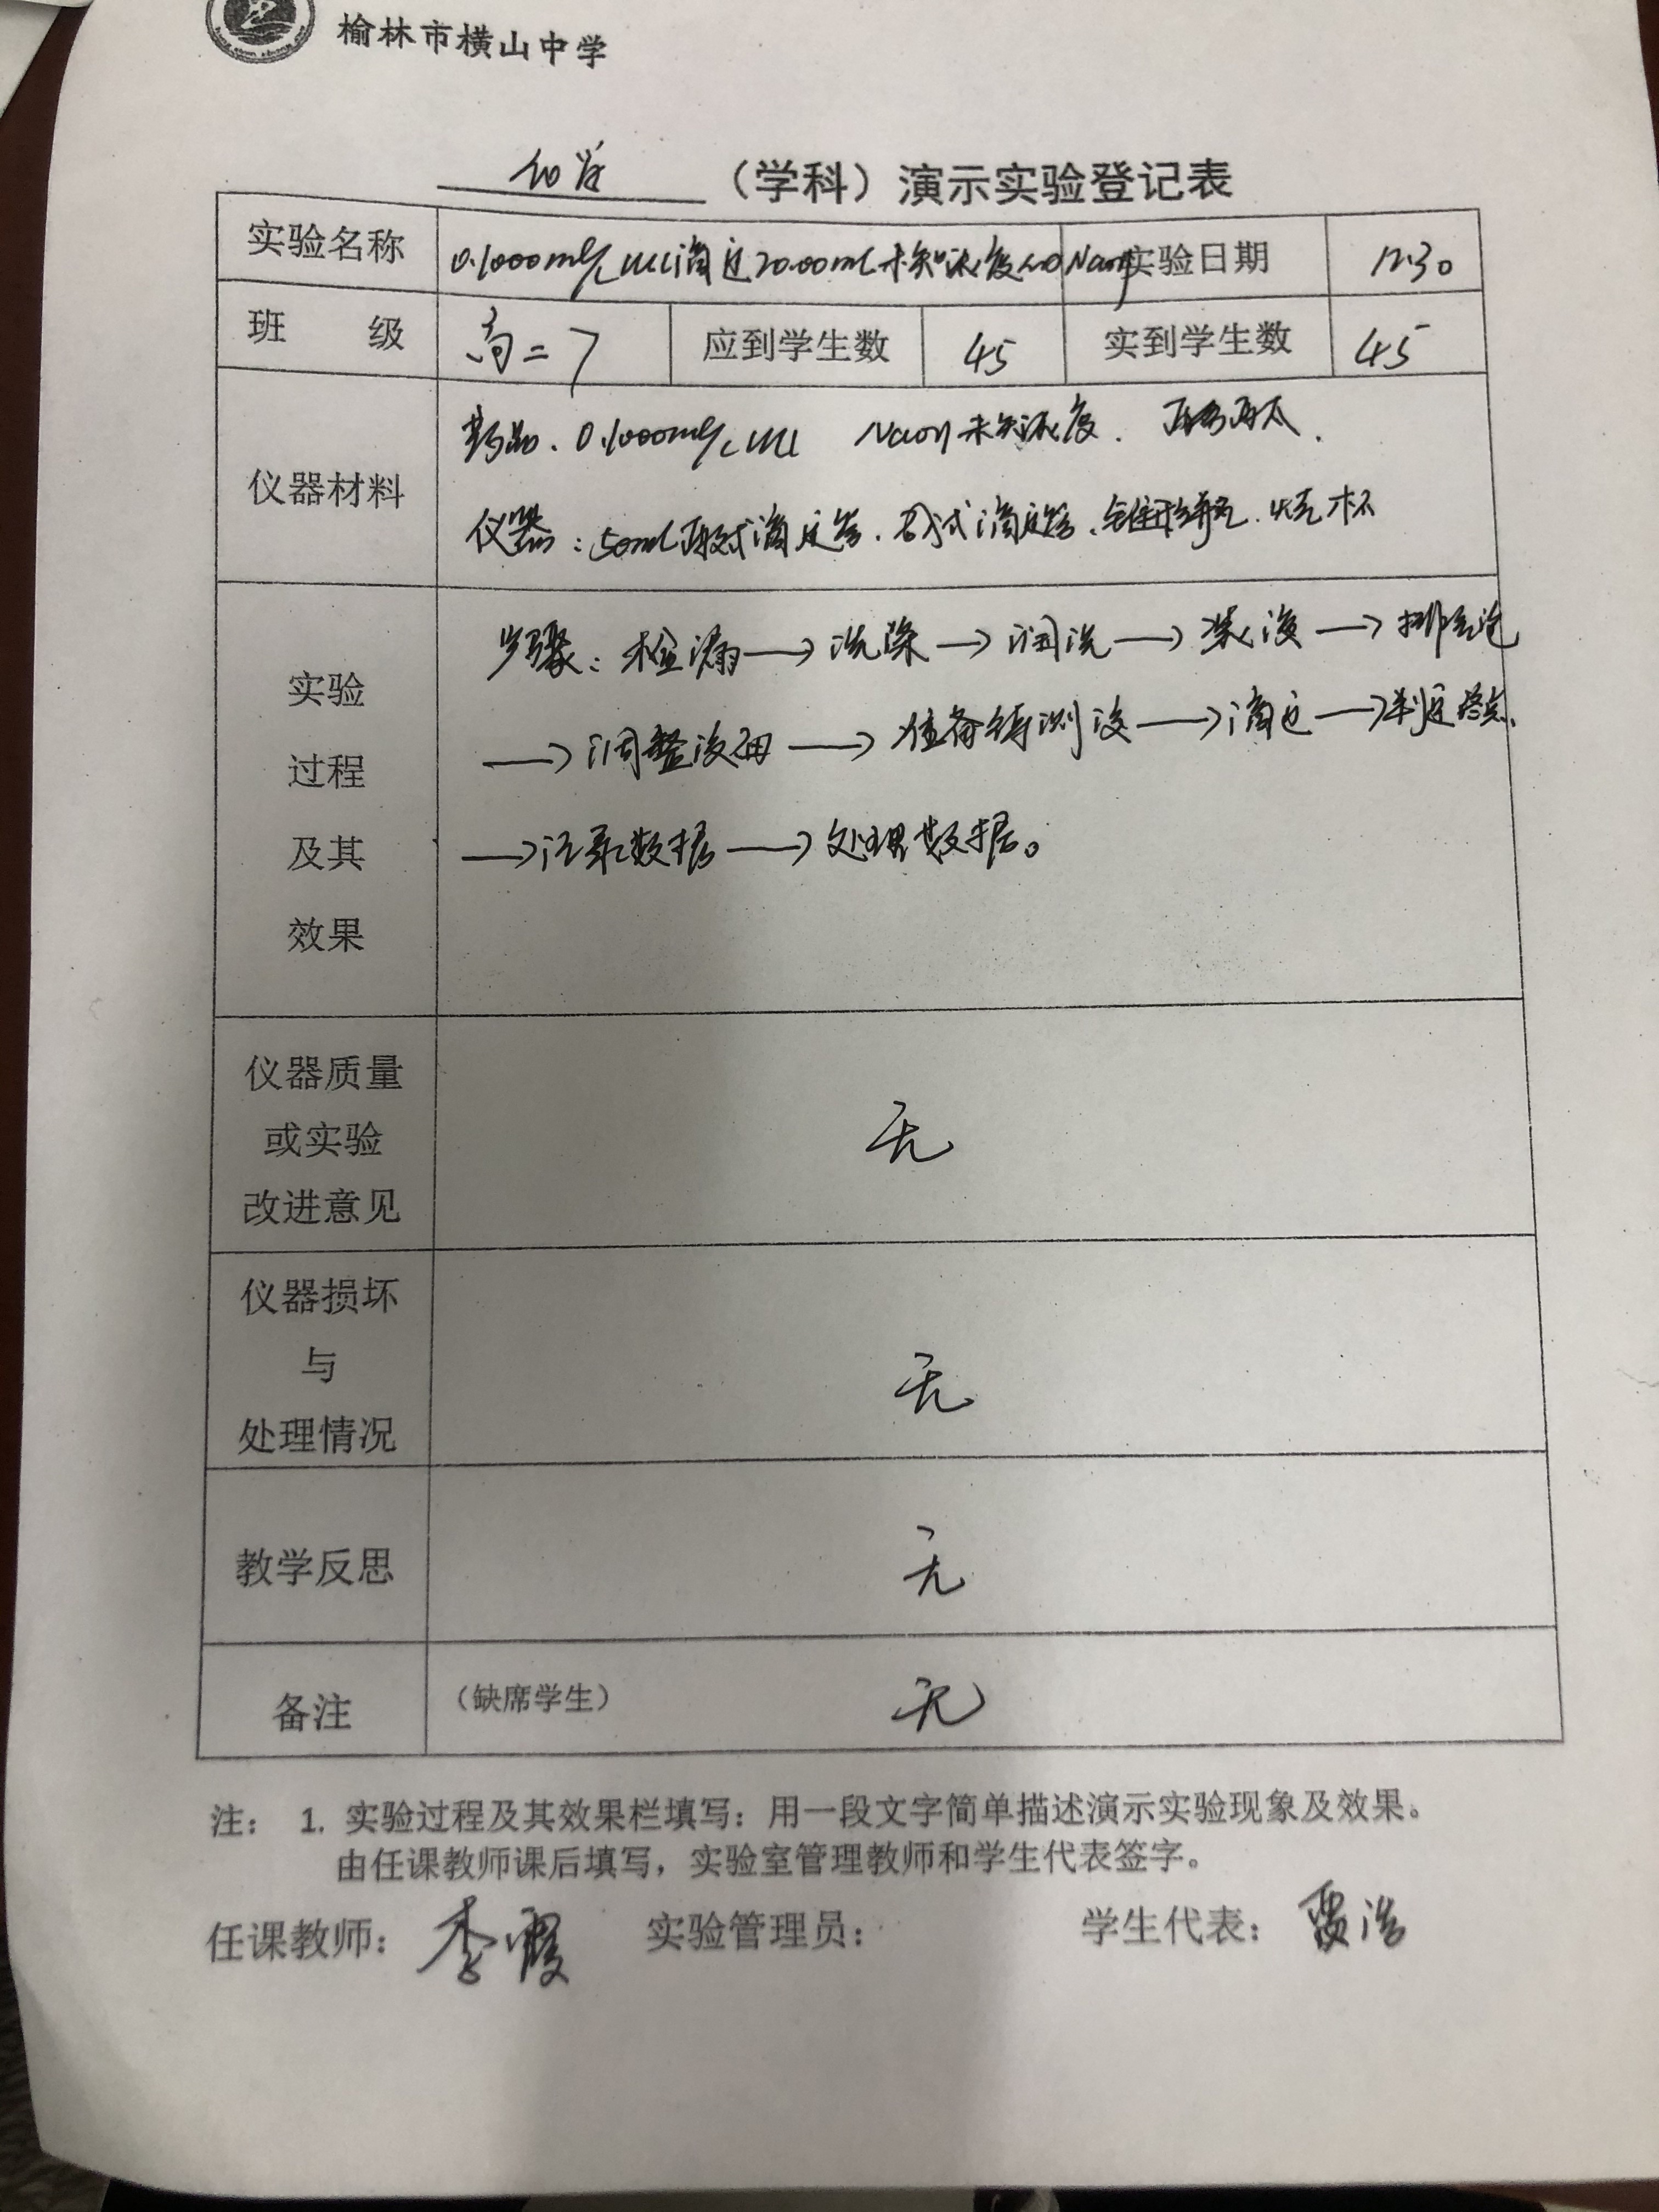 榆林市横山中学
化学 （学科）演示实验登记表
实验名称 0.1000mol/L HCl滴定20.00mL未知浓度的NaOH 实验日期 12.30
班 级 高二7 应到学生数 45 实到学生数 45
药品、0.1000mol/L HCl NaOH未知浓度、
仪器材料
仪器：50mL酸式滴定管、碱式滴定管、锥形瓶、烧杯
步骤：检漏→洗涤→润洗→装液→排气泡
实验
→调整液面→准备待测液→滴定→判定终点
过程
→记录数据→处理数据。
及其
效果
仪器质量
或实验 无
改进意见
仪器损坏
与 无
处理情况
教学反思 无
备注 （缺席学生） 无
注： 1. 实验过程及其效果栏填写：用一段文字简单描述演示实验现象及效果。
由任课教师课后填写，实验室管理教师和学生代表签字。
任课教师：李霞 实验管理员： 学生代表：